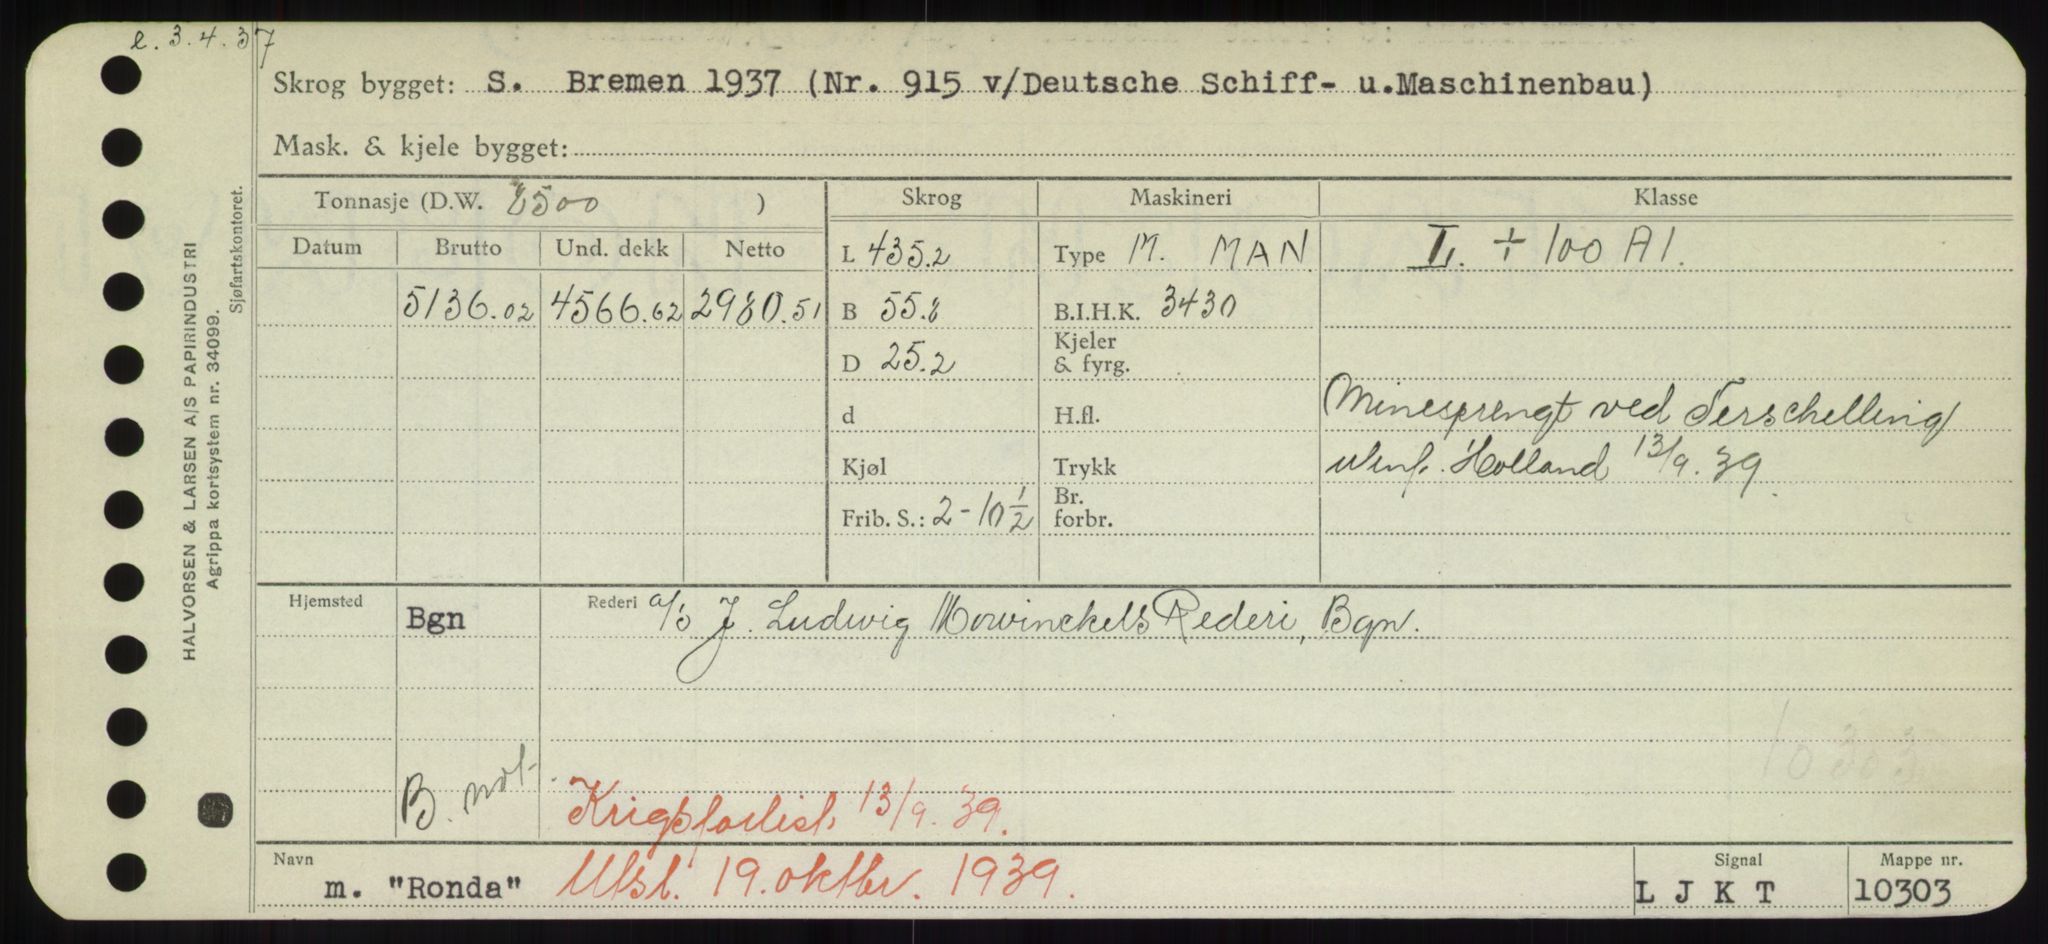 l. 3.4.37
Skrog bygget: S. Bremen 1937 (Nr. 915 v/Deutsche Schiff- u.Maschinenbau)
Mask. & kjele bygget:
Tonnasje (D.W. 8500 ) Skrog Maskineri Klasse
Datum Brutto Und. dekk Netto L 435.2 Type M. MAN. L. + 100 A1.
5136.02 4566.62 2980.51 B 55.8 B.I.H.K. 3430
D 25.2 Kjeler & fyrg.
d H.fl. Minesprengt ved Terschelling
Kjøl Trykk Holland 13/9.39.
Frib. S.: 2-10 1/2 Br. forbr.
Hjemsted Bgn Rederi a/s J. Ludwig Mowinckels Rederi, Bgn.
10303
B. not.
Krigsforlist 13/9.39.
Navn m. "Ronda" Utsl. 19. oktbr. 1939. Signal L J K T Mappe nr. 10303
HALVORSEN & LARSEN A/S PAPIRINDUSTRI
Agrippa kortsystem nr. 34099.
Sjøfartskontoret.